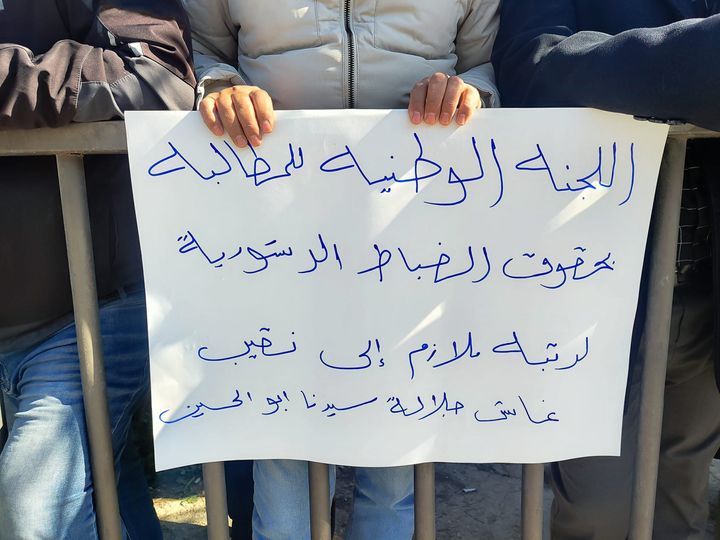 اللجنه الوطنيه للمطالبه
بحقوق الضباط الدستورية
لرتبه ملازم إلى نقيب
عاش جلالة سيدنا ابو الحسين